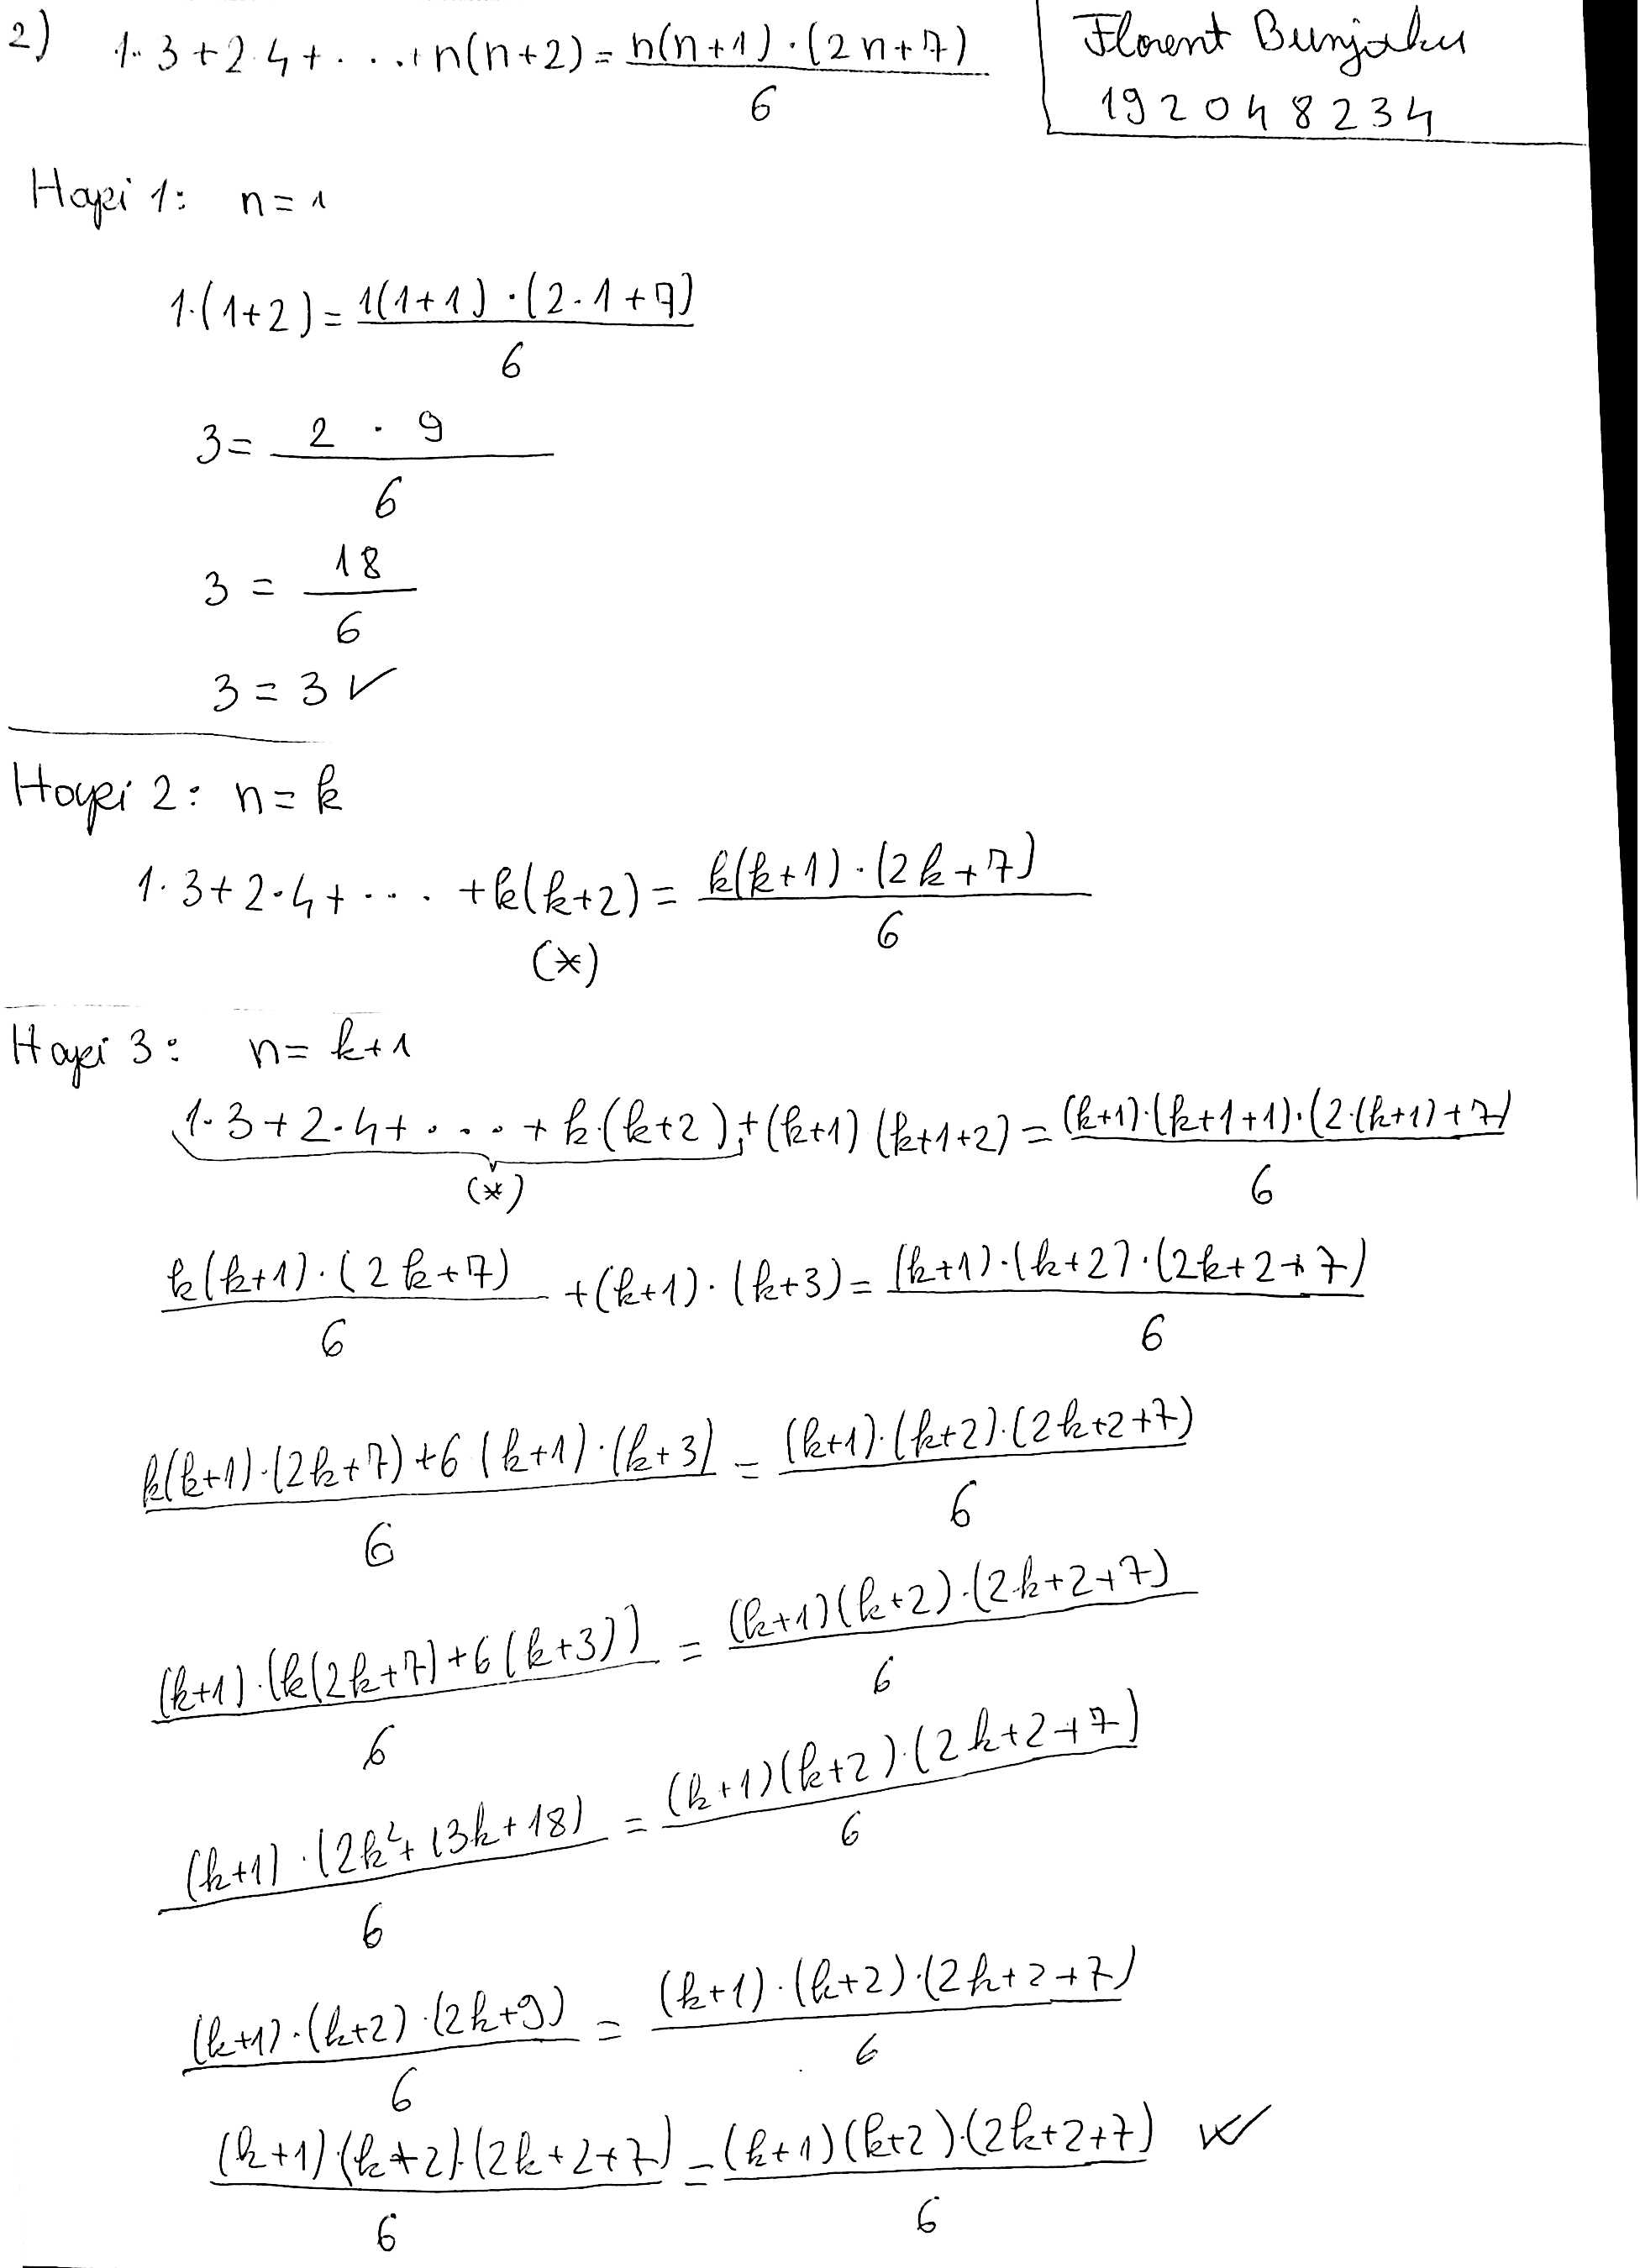 2) 1·3+2·4+....+n(n+2)=n(n+1)·(2n+7)/6
Florent Bunjaku
192048234
Hapi 1: n=1
1·(1+2)=1(1+1)·(2·1+7)/6
3=2·9/6
3=18/6
3=3✓
Hapi 2: n=k
1·3+2·4+.... +k(k+2)=k(k+1)·(2k+7)/6
(*)
Hapi 3: n=k+1
1·3+2·4+....+k·(k+2)+(k+1)(k+1+2)=(k+1)·(k+1+1)·(2·(k+1)+7)/6
(*)
k(k+1)·(2k+7)/6+(k+1)·(k+3)=(k+1)·(k+2)·(2k+2+7)/6
k(k+1)·(2k+7)+6(k+1)·(k+3)/6=(k+1)·(k+2)·(2k+2+7)/6
(k+1)·(k(2k+7)+6(k+3))/6=(k+1)(k+2)·(2k+2+7)/6
(k+1)·(2k²+13k+18)/6=(k+1)(k+2)·(2k+2+7)/6
(k+1)·(k+2)·(2k+9)/6=(k+1)·(k+2)·(2k+2+7)/6
(k+1)·(k+2)·(2k+2+7)/6=(k+1)(k+2)·(2k+2+7)/6 ✓✓